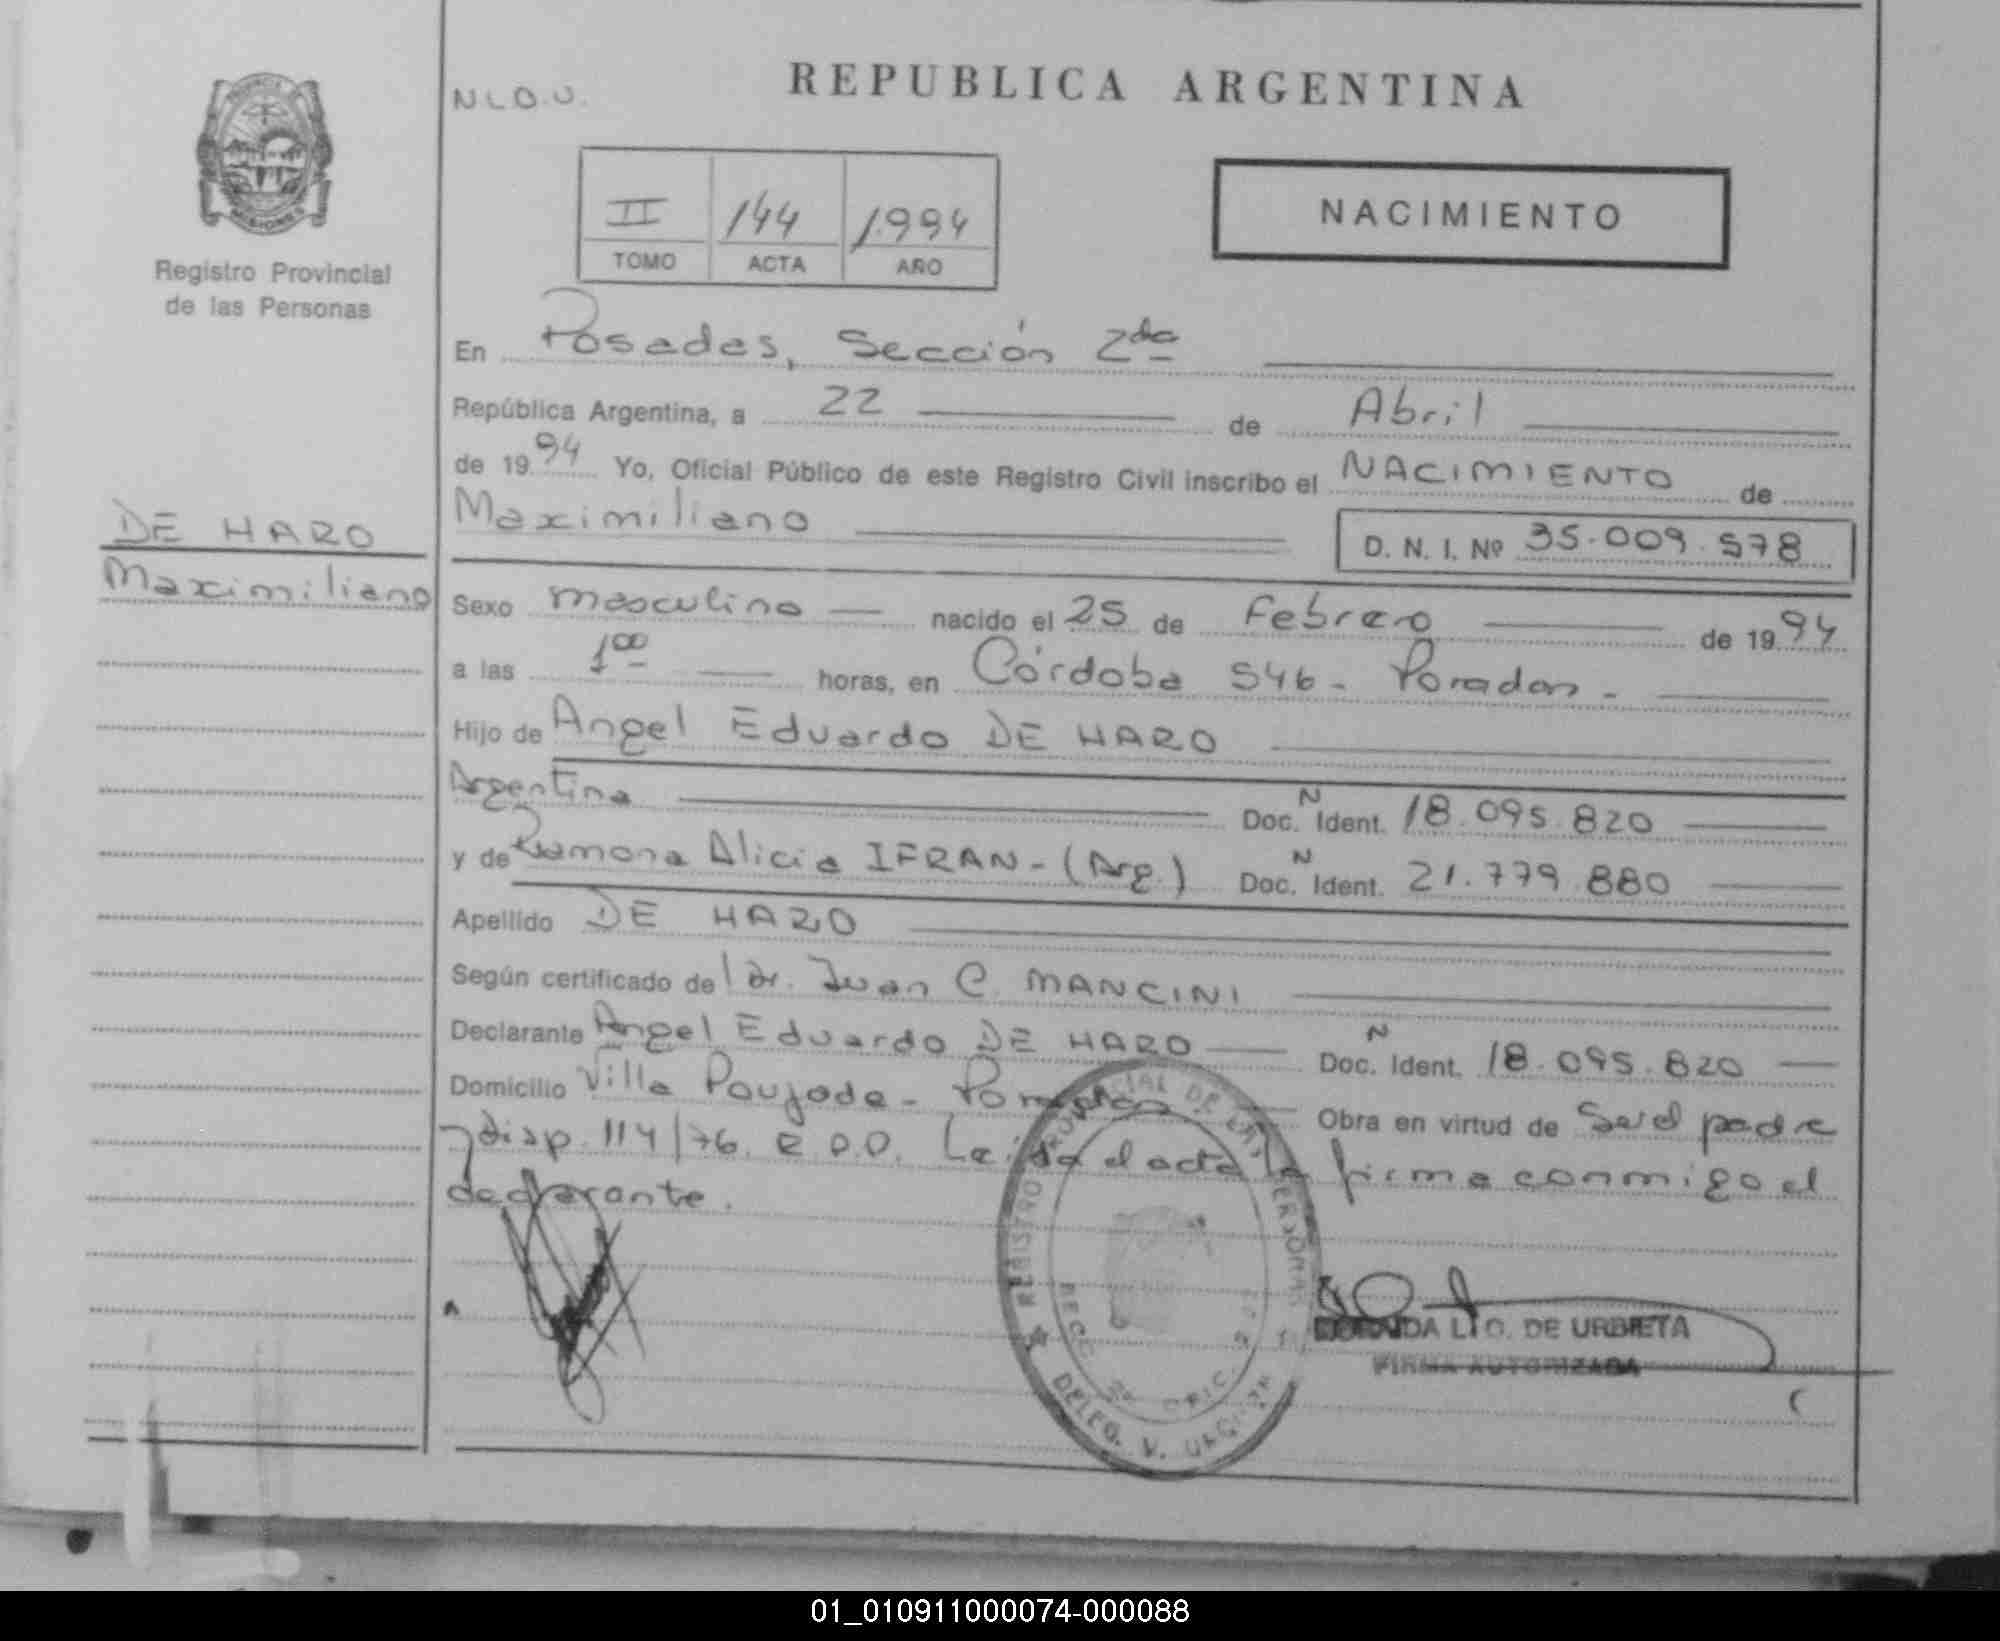 REPUBLICA ARGENTINA
N L O.U.
II 144 1.994
TOMO ACTA AÑO
NACIMIENTO
Registro Provincial
de las Personas
DE HARO
Maximiliano
En Posadas, Sección 2da
República Argentina, a 22 de Abril
de 1994 Yo, Oficial Público de este Registro Civil inscribo el NACIMIENTO de
Maximiliano D. N. I. Nº 35.009.578
Sexo masculino nacido el 25 de Febrero de 1994
a las 1 00 horas, en Córdoba 546 - Posadas -
Hijo de Angel Eduardo DE HARO
Argentina N Doc. Ident. 18.095.820
y de Ramona Alicia IFRAN - (Arg.) N Doc. Ident. 21.779.880
Apellido DE HARO
Según certificado de l Dr. Juan C. MANCINI
Declarante Angel Eduardo DE HARO N Doc. Ident. 18.095.820
Domicilio Villa Poujade - Posadas Obra en virtud de Ser el padre
y disp. 114/76. R.D.D. Leída el acta la firma conmigo el
declarante.
REGISTRO PROVINCIAL DE LAS PERSONAS
DELEG. V. URQUIZA
LTO. DE URBIETA
FIRMA AUTORIZADA
01_010911000074-000088